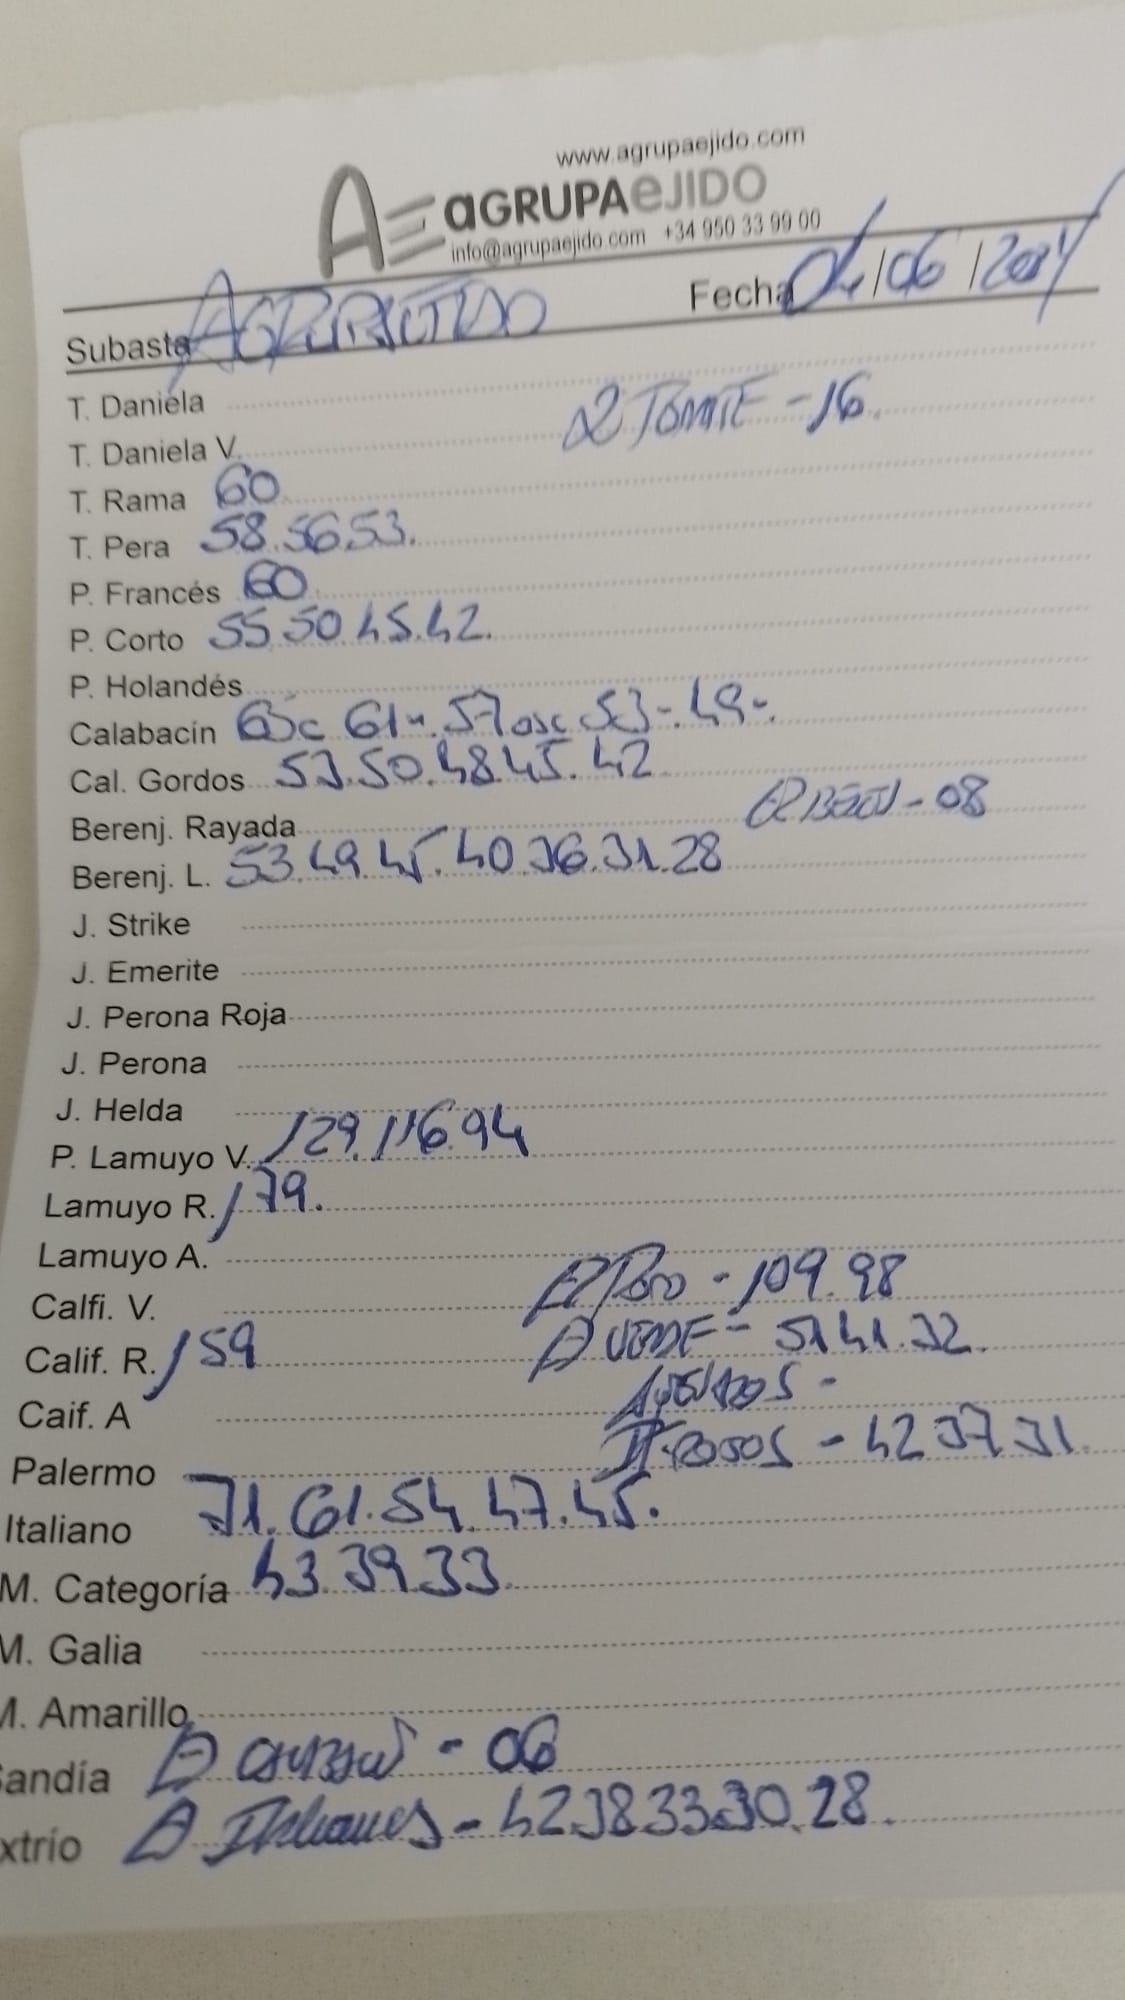 www.agrupaejido.com
AGRUPAEJIDO
info@agrupaejido.com +34 950 33 99 00
Subasta AGRUPAEJIDO Fecha 04/06/2024
T. Daniela
TOMATE - 16.
T. Daniela V.
T. Rama 60
T. Pera 58.56 53.
P. Francés 60
P. Corto 55 50 45.42.
P. Holandés
Calabacín 63c 61-. 57 osc 53-.49-.
Cal. Gordos 53.50.48 45.42
- 08
Berenj. Rayada
Berenj. L. 53.49.45.40.36.31.28
J. Strike
J. Emerite
J. Perona Roja
J. Perona
J. Helda
P. Lamuyo V. 129.116.94
Lamuyo R. 179.
Lamuyo A.
Calfi. V. - 109.98
Calif. R. 159 VERDE - 51 41.32.
Caif. A
Palermo ROJOS - 42 37 31.
Italiano 71.61.54.47.45.
M. Categoría 43.39.33
M. Galia
M. Amarillo
andía - 06
xtrío Italianos - 42.38 33.30.28.